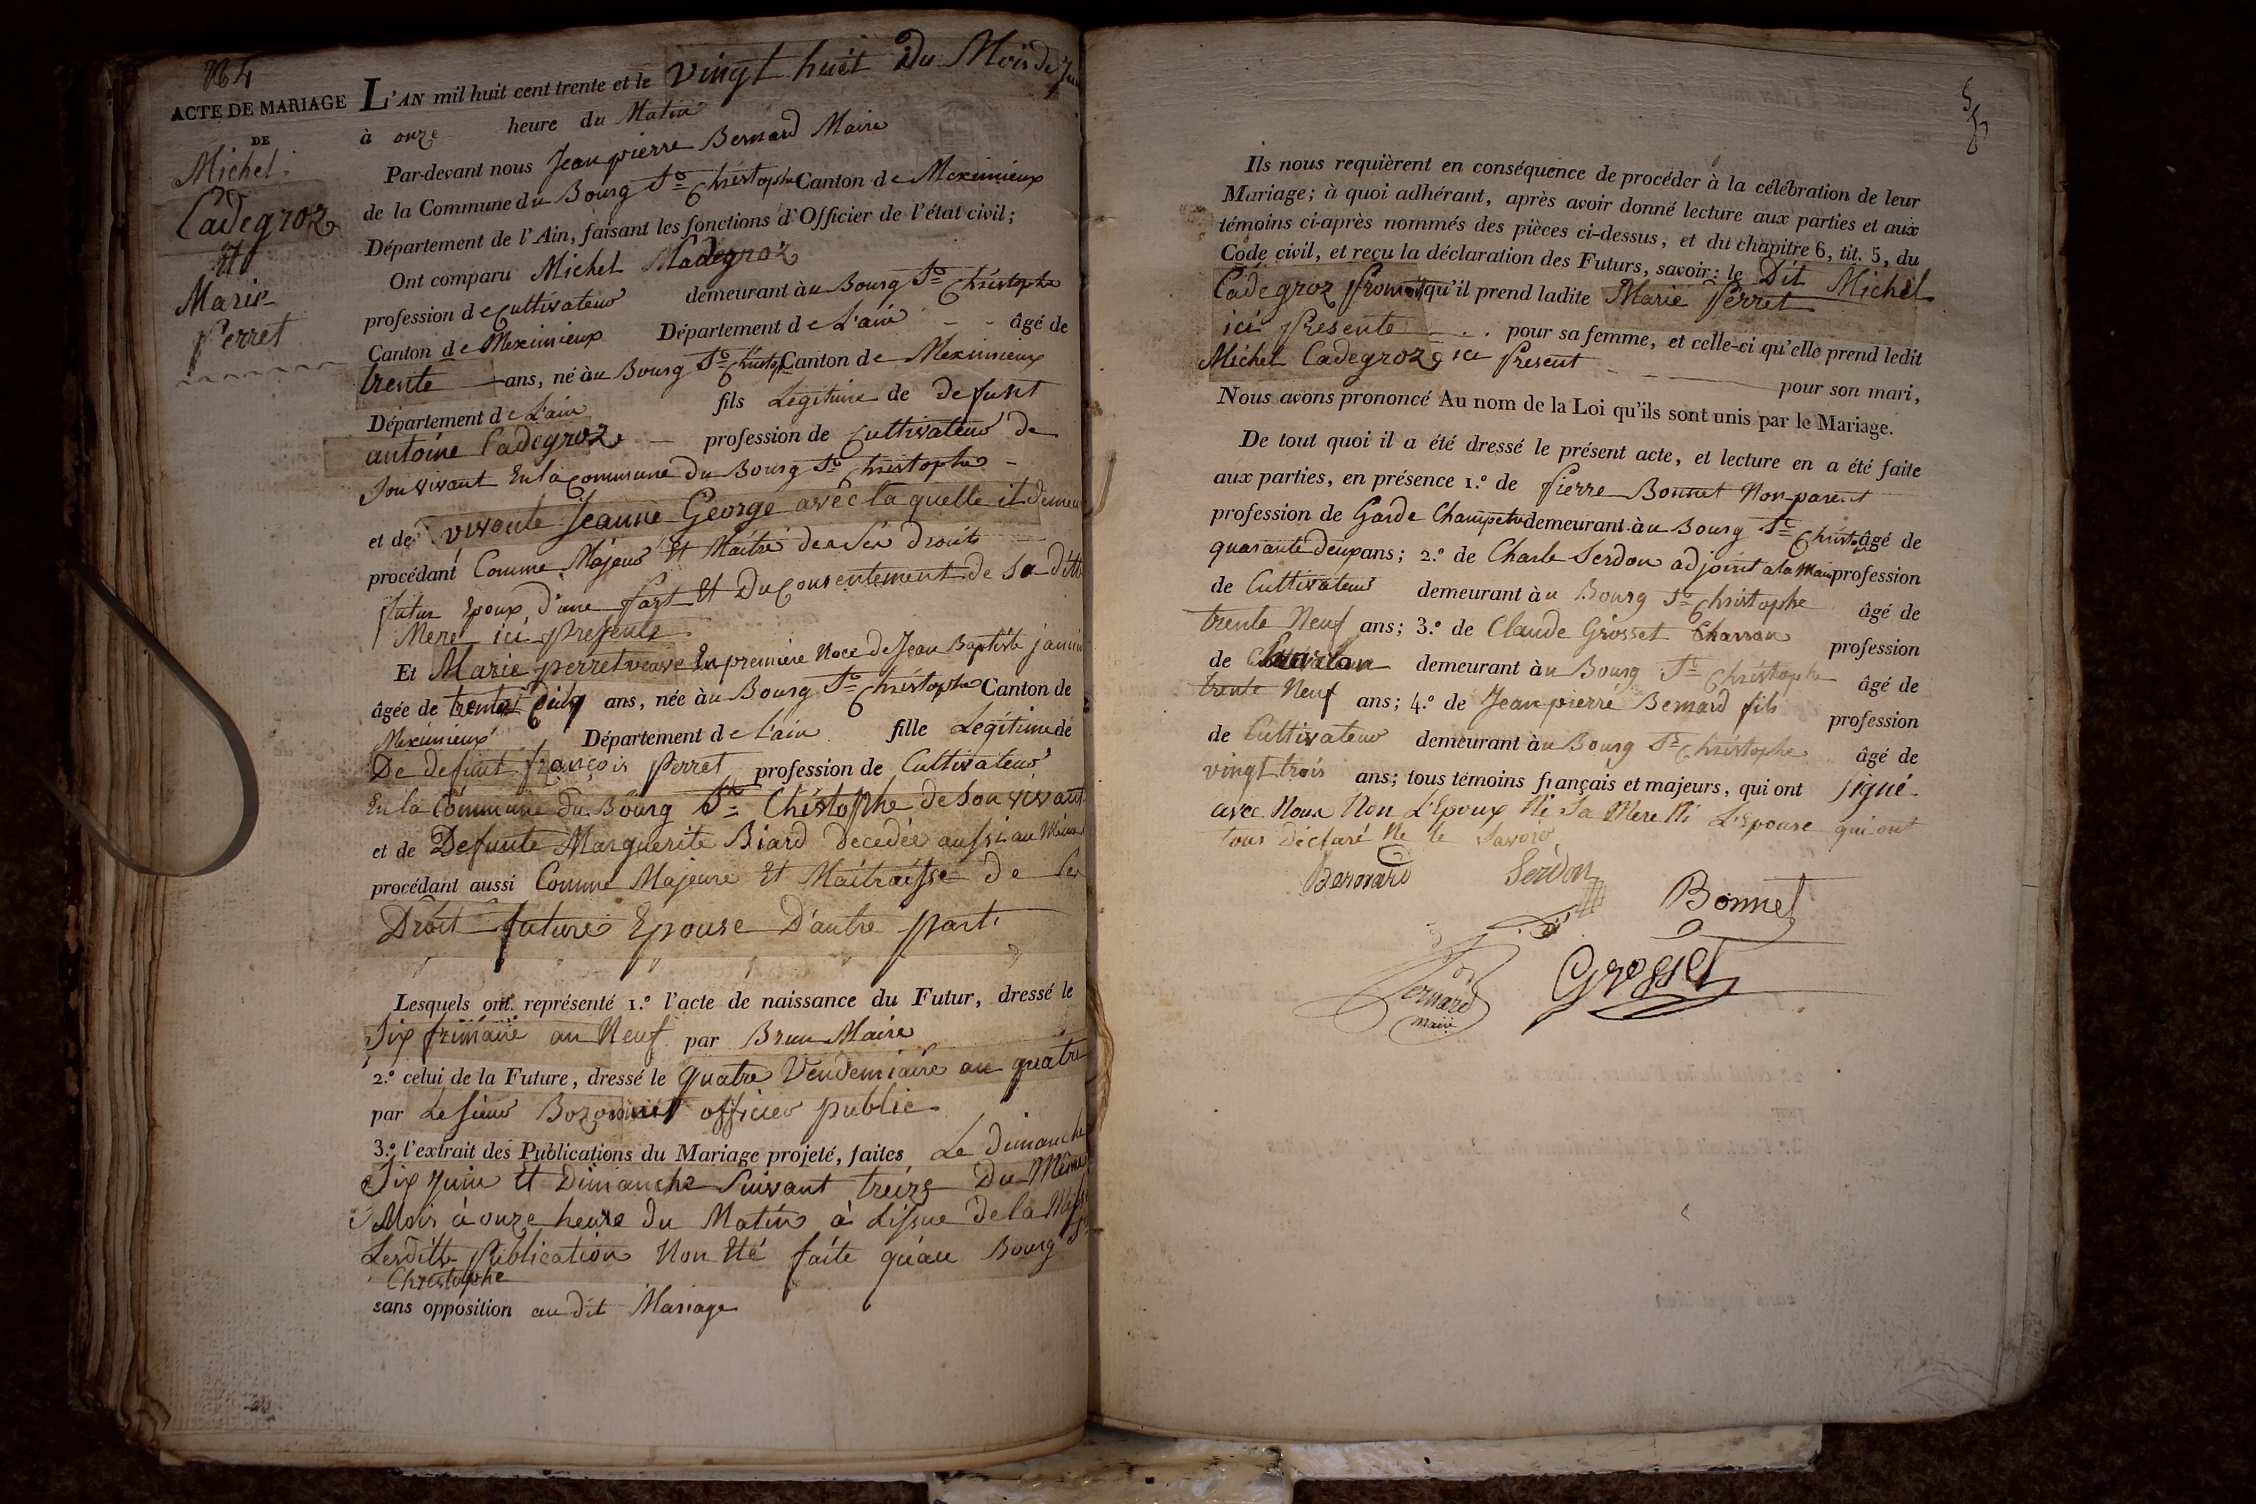 N 4
ACTE DE MARIAGE
DE
Michel
Cadegroz
Et
Marie
Perret
L'AN mil huit cent trente et le vingt huit Du Mois de
à onze heure du Matin
Par-devant nous Jean pierre Bernard Maire
de la Commune du Bourg St Christophe Canton de Meximieux
Département de l'Ain, faisant les fonctions d'Officier de l'état civil;
Ont comparu Michel Cadegroz
profession de Cultivateur demeurant àu Bourg St Christophe
Canton de Meximieux Département de L'ain - - âgé de
trente ans, né àu Bourg St Christophe Canton de Meximieux
Département de L'ain fils Legitime de defunt
antoine Cadegroz profession de Cultivateur de
Son vivant En la Commune du Bourg St Christophe
et de vivante Jeanne George avec la quelle il
procédant Comme Majeur Et Maitre de ses droits
futur Epoux d'une part Et Du Consentement de Sa Ditte
Mere ici presente
Et Marie perret veuve En premiere Noce de Jean Baptiste
âgée de ans, née àu Bourg St Christophe Canton de
Meximieux Département de L'ain fille Legitime de
De defunt françois Perret profession de Cultivateur
En la Commune du Bourg St Christophe de Son vivant
et de Defunte Marguerite Biard decedée aussi au
procédant aussi Comme Majeure Et Maitraisse De
Droit future Epouse D'autre part
Lesquels ont représenté 1.º l'acte de naissance du Futur, dressé le
Six frimaire an Neuf par Brun Maire
2.º celui de la Future, dressé le Quatre Vendemiaire an quatre
par Le Sieur officier public
3.º l'extrait des Publications du Mariage projeté, faites Le Dimanche
Six Juin Et Dimanche Suivant treize Du Même
Mois à onze heure du Matin à Lissue de la
Lesditte Publication Non Eté faite qu'au Bourg St
Christophe
sans opposition au dit Mariage
Ils nous requièrent en conséquence de procéder à la célébration de leur
Mariage; à quoi adhérant, après avoir donné lecture aux parties et aux
témoins ci-après nommés des pièces ci-dessus, et du chapitre 6, tit. 5, du
Code civil, et reçu la déclaration des Futurs, savoir: le Dit Michel
Cadegroz qu'il prend ladite Marie Perret
ici Presente pour sa femme, et celle-ci qu'elle prend ledit
Michel Cadegroz ici Present pour son mari,
Nous avons prononcé Au nom de la Loi qu'ils sont unis par le Mariage.
De tout quoi il a été dressé le présent acte, et lecture en a été faite
aux parties, en présence 1.º de Pierre Bonnet Non parent
profession de Garde Champetre demeurant àu Bourg St âgé de
quarante deux ans; 2.º de Charle Serdon adjoint a la profession
de Cultivateur demeurant àu Bourg St Christophe âgé de
trente Neuf ans; 3.º de Claude Grosset Charron profession
de demeurant àu Bourg St Christophe âgé de
trente Neuf ans; 4.º de Jean pierre Bernard fils profession
de Cultivateur demeurant àu Bourg St Christophe âgé de
vingt trois ans; tous témoins français et majeurs, qui ont signé
avec Nous Non L'Epoux Ni Sa Mere Ni L'Epouse qui ont
tous Déclaré Ne le Savoir
Bernard Serdon
Bonnet
Bernard
maire
Grosset